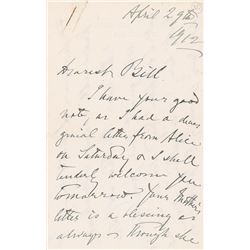 April 29th
1912
Dearest Bill
I have your good
note, as I had a dear
genial letter from Alice
on Saturday, & I shall
tenderly welcome you
tomorrow. Your Mother's
letter is a blessing as
always – though she